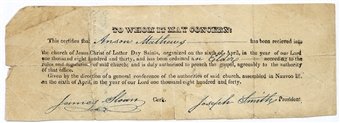 TO WHOM IT MAY CONCERN:
This certifies that Anson Mathews has been received into
the church of Jesus Christ of Latter Day Saints, organized on the sixth of April, in the year of our Lord
one thousand eight hundred and thirty, and has been ordained an Elder according to the
rules and regulations of said church; and is duly authorized to preach the gospel, agreeably to the authority
of that office.
Given by the direction of a general conference of the authorities of said church, assembled in Nauvoo Ill.
on the sixth of April, in the year of our Lord one thousand eight hundred and forty.
James Sloan Clerk. Joseph Smith President